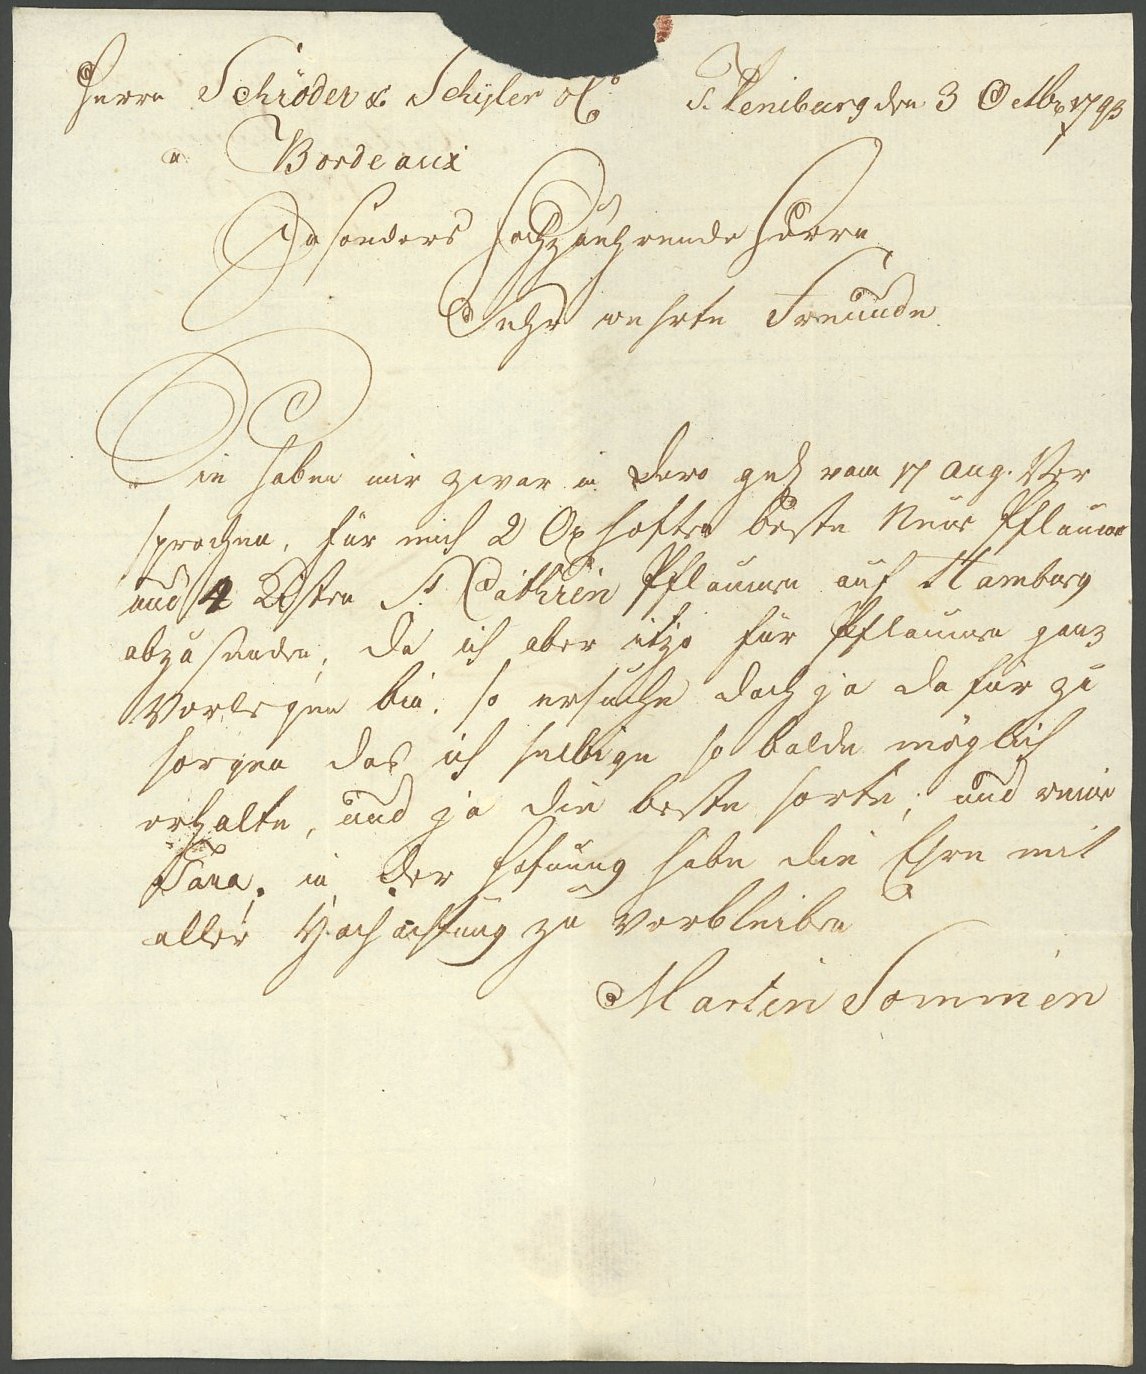 Herrn Schröder & Schÿler & Co. Flensburg den 3 Octbr 1793
a Bordeaux
Besonders Hochzuehrende Herrn
Sehr wehrte Freunde
Sie haben mir zwar in Dero geeh vom 17 Aug. Ver
sprochen, für mich 2 Oxhoften beste Neue Pflaumen
und 4 Kisten St. Cathrin Pflaumen auf Hamburg
abzusenden, da ich aber itzo für Pflaumen ganz
Verlegen bin. so ersuche doch ja dafür zu
sorgen das ich selbige so balde möglich
erhalte, und ja die beste sorte, und reine
Tara. in der Hofnung habe die Ehre mit
aller Hochachtung zu verbleiben
Martin Sommen